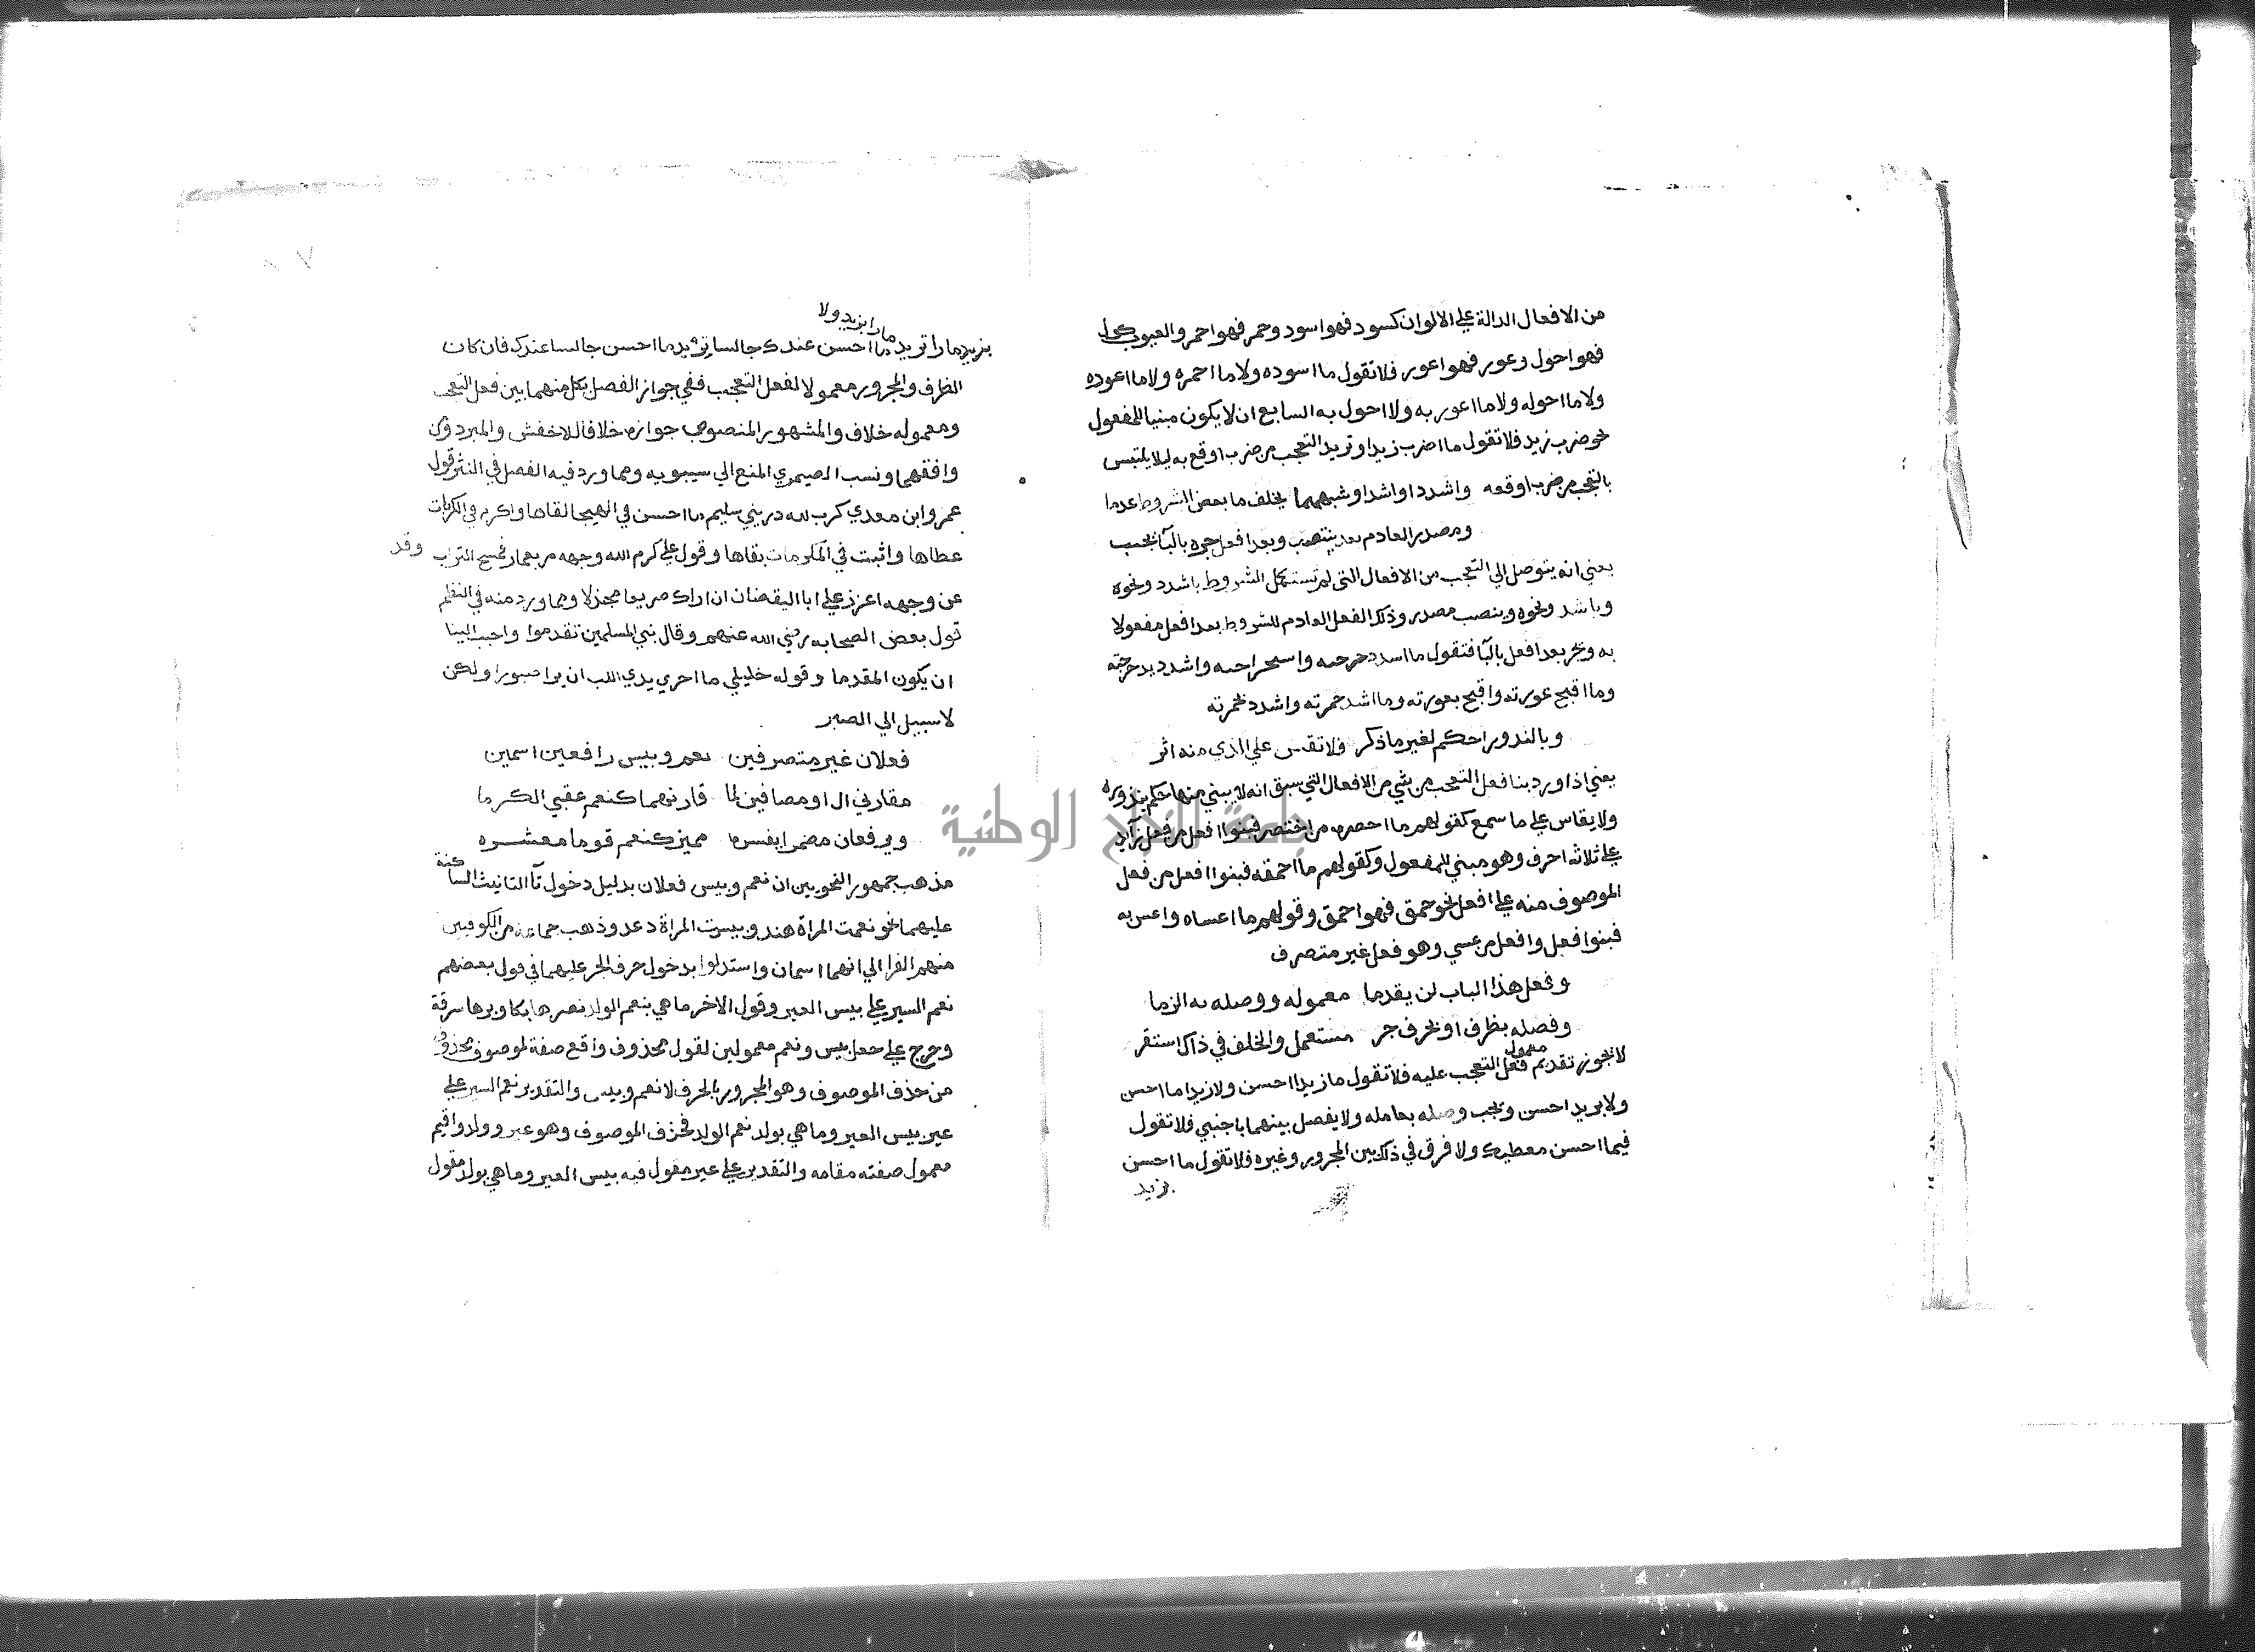 من الافعال الدالة علي الالوان كسود فهو اسود وحمر فهو احمر والعيوب كحول
فهو احول وعور فهو اعور فلا تقول ما اسوده ولا ما احمره ولا ما اعوده
ولا ما احوله ولا ما اعور به ولا احول به السابع ان لا يكون مبنيا للمفعول
نحو ضرب زيد فلا تقول ما اضرب زيدا وتريد التعجب من ضرب اوقع به ليلا يلتبس
بالتعجب من ضرب اوقعه واشدد او اشد او شبههما يخلف ما بعض الشروط عدما
ومصدر العادم بعد ينتصب وبعد افعل جره بالبا يجب
يعني انه يتوصل الي التعجب من الافعال التي لم تستكمل الشروط باشدد ونحوه
وباشد ونحوه وينصب مصدر وذلك الفعل العادم للشروط بعد افعل مفعولا
به ويجر بعد افعل بالبا فتقول ما اسدد حرحىه واسىحراحىه واشدد بدحرجته
وما اقبح عورته واقبح بعورته وما اشد حمرته واشدد بحمرته
وبالندور احكم لغير ما ذكر فلا تقس علي الذي منه اثر
يعني اذا ورد بنا فعل التعجب من شي من الافعال التي سبق انه لا يبني منها حكم بندوره
ولا يقاس علي ما سمع كقولهم ما احصره من اختصر فبنوا افعل من فعل زايد
علي ثلاثه احرف وهو مبني للمفعول وكقولهم ما احمقه فبنوا افعل من فعل
الموصوف منه علي افعل نحو حمق فهو احمق وقولهم ما اعساه واعس به
فبنوا فعل وافعل من عسي وهو فعل غير متصرف
وفعل هذا الباب لن يقدما معموله ووصله به الزما
وفصله بظرف او بحرف جر مستعمل والخلف في ذاك استقر
لا يجوز تقديم معمول فعل التعجب عليه فلا تقول ما زيدا احسن ولا زيدا ما احسن
ولا بزيد احسن ويجب وصله بعامله ولا يفصل بينهما باجنبي فلا تقول
فيما احسن معطيك ولا فرق في ذلك بين المجرور وغيره فلا تقول ما احسن
بزيد
مارا بزيد ولا
بزيد مارا تريد ما احسن عندك جالسا تريد ما احسن جالسا عندك فان كان
الظرف والمجرور معمولا لفعل التعجب ففي جواز الفصل بكل منهما بين فعل التعجب
ومعموله خلاف والمشهور المنصوص جوازه خلافا للاخفش والمبرد ومن
وافقهما ونسب الصيمري المنع الي سيبويه ومما ورد فيه الفصل في النثر قول
عمر وابن معدي كرب لله در بني سليم ما احسن في الهيجا لقاها واكرم في الكربات
عطاها واثبت في المكرمات بقاها وقول علي كرم الله وجهه مر بعمار فمسح التراب وقد
عن وجهه اعزز علي ابا اليقضان ان اراك صريعا مجدلا ومما ورد منه في النظم
قول بعض الصحابه رضي الله عنهم وقال نبي المسلمين تقدموا واحبب الينا
ان يكون المقدما وقوله خليلي ما احري بذي اللب ان يرا صبورا ولكن
لا سبيل الي الصبر
فعلان غير متصرفين نعم وبيس رافعين اسمين
مقارني ال او مضافين لما قارنها كنعم عقبي الكرما
ويرفعان مضمرا يفسره مميز كنعم قوما معشره
مذهب جمهور النحويين ان نعم وبيس فعلان بدليل دخول تا التانيث الساكنة
عليهما نحو نعمت المراة هند وبيست المراة دعد وذهب جماعة من الكوفيين
منهم الفرا الي انهما اسمان واستدلوا بدخول حرف الجر عليهما في قول بعضهم
نعم السير علي بيس العير وقول الاخر ما هي بنعم الولد نصرها بكا وبرها سرقة
وخرج علي جعل بيس ونعم معمولين لقول محذوف واقع صفة لموصوف محذوف
من حذف الموصوف وهو المجرور بالحرف لا نعم وبيس والتقدير نعم السير علي
عير بيس العير وما هي بولد نعم الولد فحذف الموصوف وهو عير وولد واقيم
معمول صفته مقامه والتقدير علي عير مقول فيه بيس العير وما هي بولد مقول
جامعة النجاح الوطنية